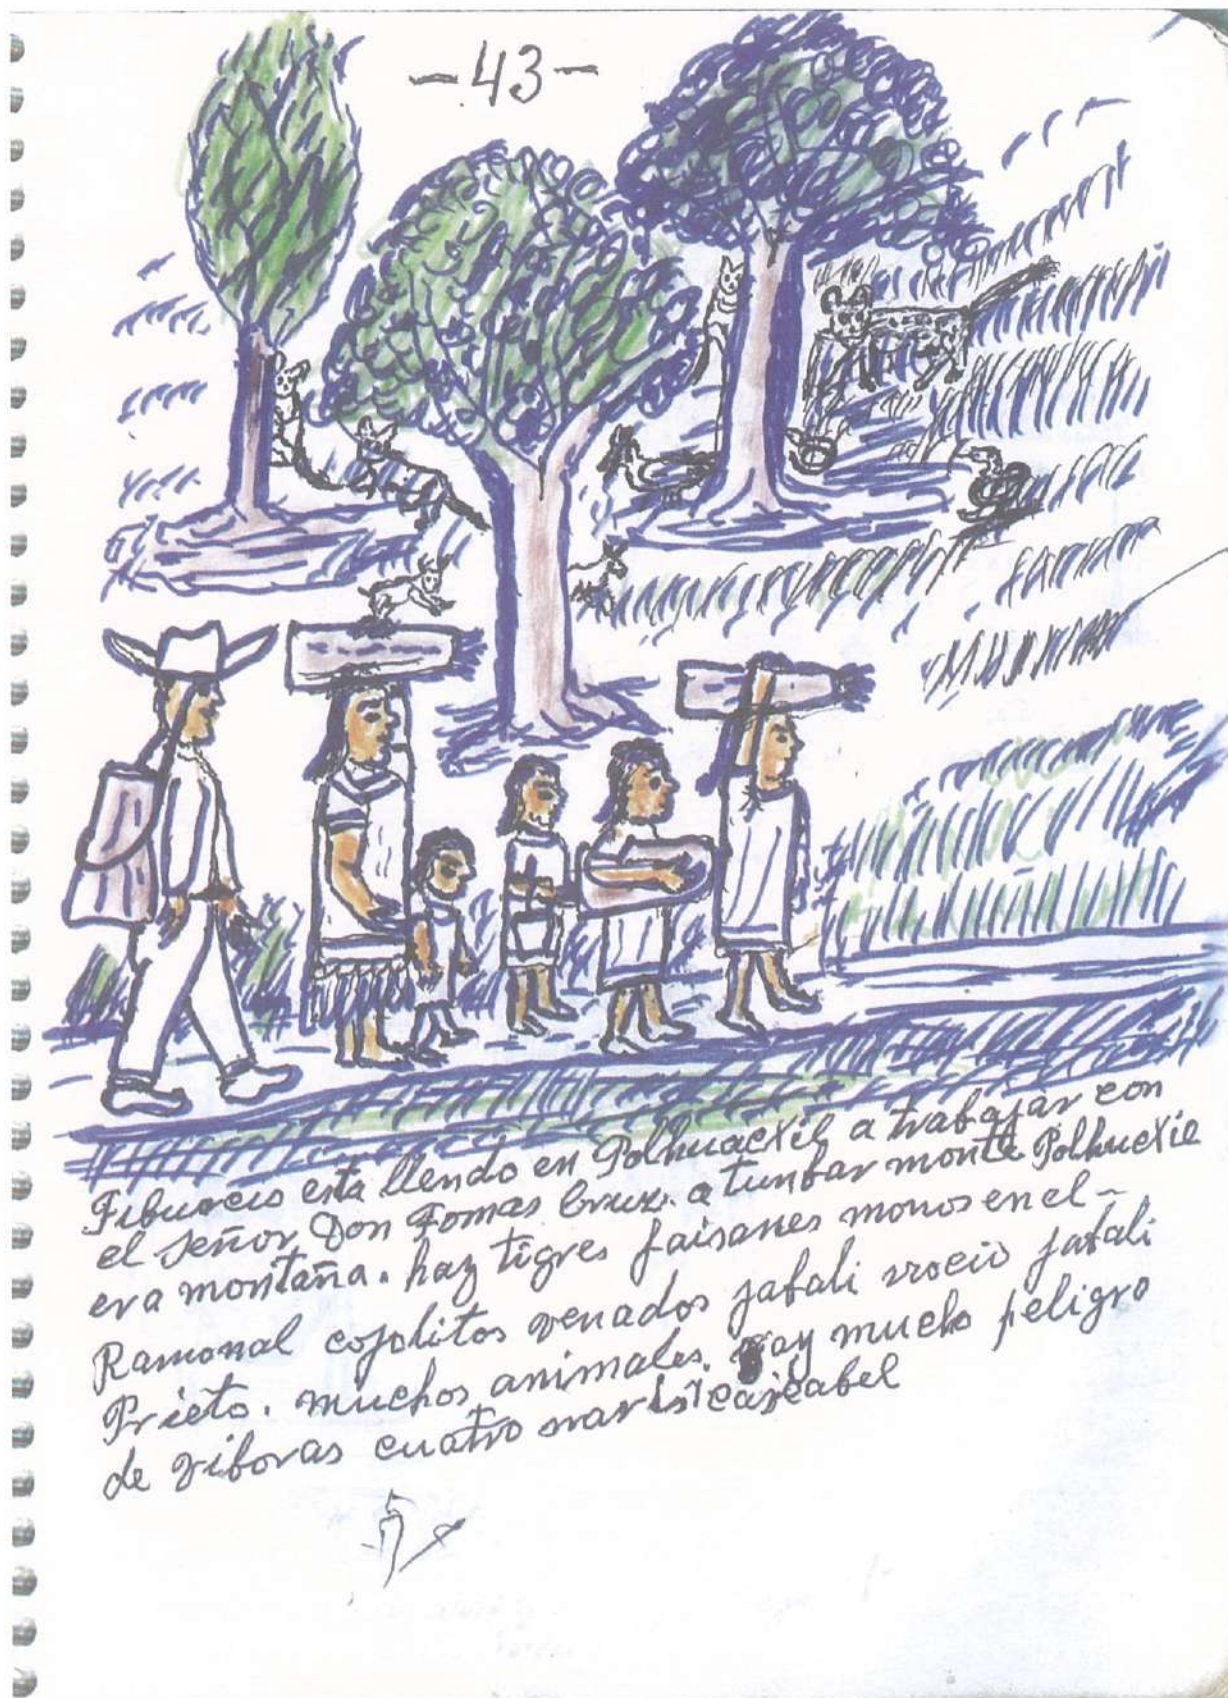 -43-
Tiburcio esta llendo en Polhuacxil, a trabajar con
el señor Don Tomas Cruz. a tunbar monte Polhucxil
era montaña. hay tigres faisanes monos en el-
Ramonal cojolitos venados jabali rocio jabali
Prieto. muchos animales. hay mucho peligro
de viboras cuatro naris cascabel